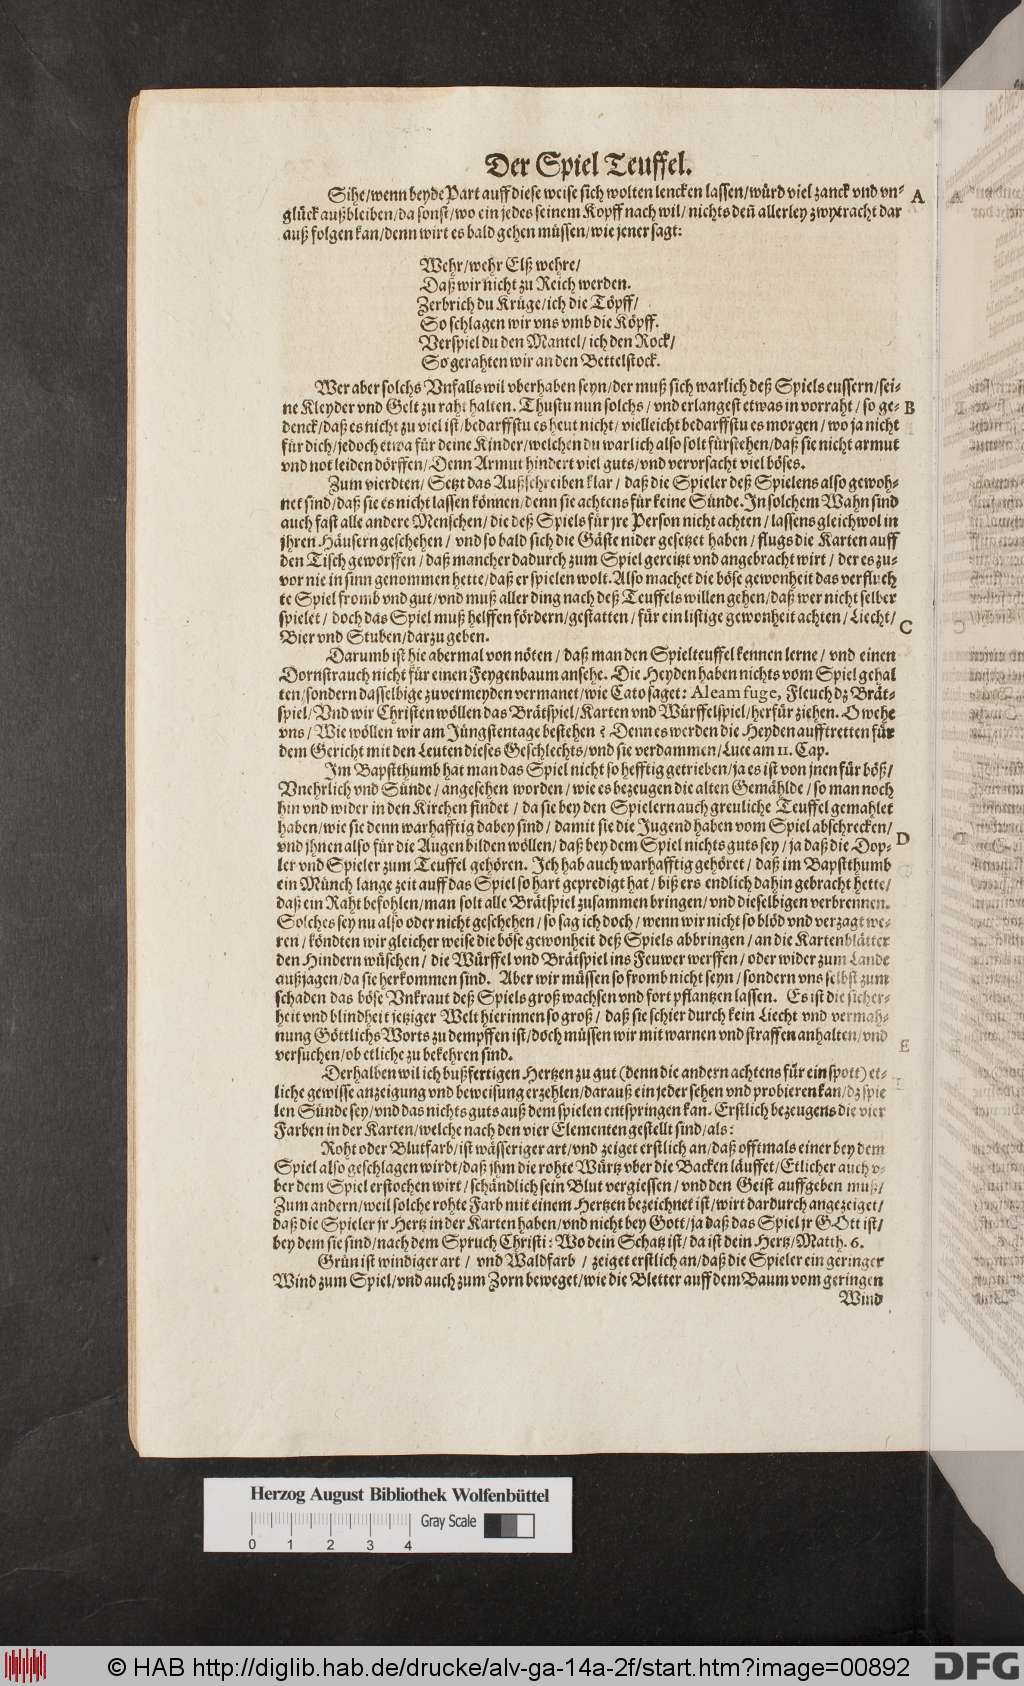 Der Spiel Teuffel.
Sihe/wenn beyde Part auff diese weise sich wolten lencken lassen/würd viel zanck vnd vn-
A
glück außbleiben/da sonst/wo ein jedes seinem Kopff nach wil/nichts deñ allerley zwytracht dar
auß folgen kan/denn wirt es bald gehen müssen/wie jener sagt:
Wehr/wehr Elß wehre/
Daß wir nicht zu Reich werden.
Zerbrich du Krüge/ich die Töpff/
So schlagen wir vns vmb die Köpff.
Verspiel du den Mantel/ich den Rock/
So gerahten wir an den Bettelstock.
Wer aber solchs Vnfalls wil vberhaben seyn/der muß sich warlich deß Spiels eussern/sei-
ne Kleyder vnd Gelt zu raht halten. Thustu nun solchs/vnd erlangest etwas in vorraht/so ge-
B
denck/daß es nicht zu viel ist/bedarffstu es heut nicht/vielleicht bedarffstu es morgen/wo ja nicht
für dich/jedoch etwa für deine Kinder/welchen du warlich also solt fürstehen/daß sie nicht armut
vnd not leiden dörffen/Denn Armut hindert viel guts/vnd verursacht viel böses.
Zum vierdten/Setzt das Außschreiben klar/daß die Spieler deß Spielens also gewoh-
net sind/daß sie es nicht lassen können/denn sie achtens für keine Sünde. In solchem Wahn sind
auch fast alle andere Menschen/die deß Spiels für jre Person nicht achten/lassens gleichwol in
jhren Häusern geschehen/vnd so bald sich die Gäste nider gesetzet haben/flugs die Karten auff
den Tisch geworffen/daß mancher dadurch zum Spiel gereitzt vnd angebracht wirt/der es zu-
vor nie in sinn genommen hette/daß er spielen wolt. Also machet die böse gewonheit das verfluch
te Spiel fromb vnd gut/vnd muß aller ding nach deß Teuffels willen gehen/daß wer nicht selber
spielet/doch das Spiel muß helffen fördern/gestatten/für ein listige gewonheit achten/Liecht/
C
Bier vnd Stuben/darzu geben.
Darumb ist hie abermal von nöten/daß man den Spielteuffel kennen lerne/vnd einen
Dornstrauch nicht für einen Feygenbaum ansehe. Die Heyden haben nichts vom Spiel gehal
ten/sondern dasselbige zuvermeyden vermanet/wie Cato saget: Aleam fuge, Fleuch dz Brät-
spiel/Vnd wir Christen wöllen das Brätspiel/Karten vnd Würffelspiel/herfür ziehen. O wehe
vns/Wie wöllen wir am Jüngstentage bestehen? Denn es werden die Heyden aufftretten für
dem Gericht mit den Leuten dieses Geschlechts/vnd sie verdammen/Luce am 11. Cap.
Im Bapstthumb hat man das Spiel nicht so hefftig getrieben/ja es ist von jnen für böß/
Vnehrlich vnd Sünde/angesehen worden/wie es bezeugen die alten Gemählde/so man noch
hin vnd wider in den Kirchen findet/da sie bey den Spielern auch greuliche Teuffel gemahlet
haben/wie sie denn warhafftig dabey sind/damit sie die Jugend haben vom Spiel abschrecken/
D
vnd jhnen also für die Augen bilden wöllen/daß bey dem Spiel nichts guts sey/ja daß die Dop-
ler vnd Spieler zum Teuffel gehören. Ich hab auch warhafftig gehöret/daß im Bapstthumb
ein Münch lange zeit auff das Spiel so hart gepredigt hat/biß ers endlich dahin gebracht hette/
daß ein Raht befohlen/man solt alle Brätspiel zusammen bringen/vnd dieselbigen verbrennen.
Solches sey nu also oder nicht geschehen/so sag ich doch/wenn wir nicht so blöd vnd verzagt we-
ren/köndten wir gleicher weise die böse gewonheit deß Spiels abbringen/an die Kartenblätter
den Hindern wüschen/die Würffel vnd Brätspiel ins Feuwer werffen/oder wider zum Lande
außjagen/da sie herkommen sind. Aber wir müssen so fromb nicht seyn/sondern vns selbst zum
schaden das böse Vnkraut deß Spiels groß wachsen vnd fort pflantzen lassen. Es ist die sicher-
heit vnd blindheit jetziger Welt hierinnen so groß/daß sie schier durch kein Liecht vnd vermah-
nung Göttlichs Worts zu dempffen ist/doch müssen wir mit warnen vnd straffen anhalten/vnd
E
versuchen/ob etliche zu bekehren sind.
Derhalben wil ich bußfertigen Hertzen zu gut (denn die andern achtens für ein spott) et-
liche gewisse anzeigung vnd beweisung erzehlen/darauß ein jeder sehen vnd probieren kan/dz spie
len Sünde sey/vnd das nichts guts auß dem spielen entspringen kan. Erstlich bezeugens die vier
Farben in der Karten/welche nach den vier Elementen gestellt sind/als:
Roht oder Blutfarb/ist wässeriger art/vnd zeiget erstlich an/daß offtmals einer bey dem
Spiel also geschlagen wirdt/daß jhm die rohte Würtz vber die Backen läuffet/Etlicher auch v-
ber dem Spiel erstochen wirt/schändlich sein Blut vergiessen/vnd den Geist auffgeben muß/
Zum andern/weil solche rohte Farb mit einem Hertzen bezeichnet ist/wirt dardurch angezeiget/
daß die Spieler jr Hertz in der Karten haben/vnd nicht bey Gott/ja daß das Spiel jr GOtt ist/
bey dem sie sind/nach dem Spruch Christi: Wo dein Schatz ist/da ist dein Hertz/Matth. 6.
Grün ist windiger art/vnd Waldfarb/zeiget erstlich an/daß die Spieler ein geringer
Wind zum Spiel/vnd auch zum Zorn beweget/wie die Bletter auff dem Baum vom geringen
Wind
Herzog August Bibliothek Wolfenbüttel
Gray Scale
0 1 2 3 4
© HAB http://diglib.hab.de/drucke/alv-ga-14a-2f/start.htm?image=00892
DFG